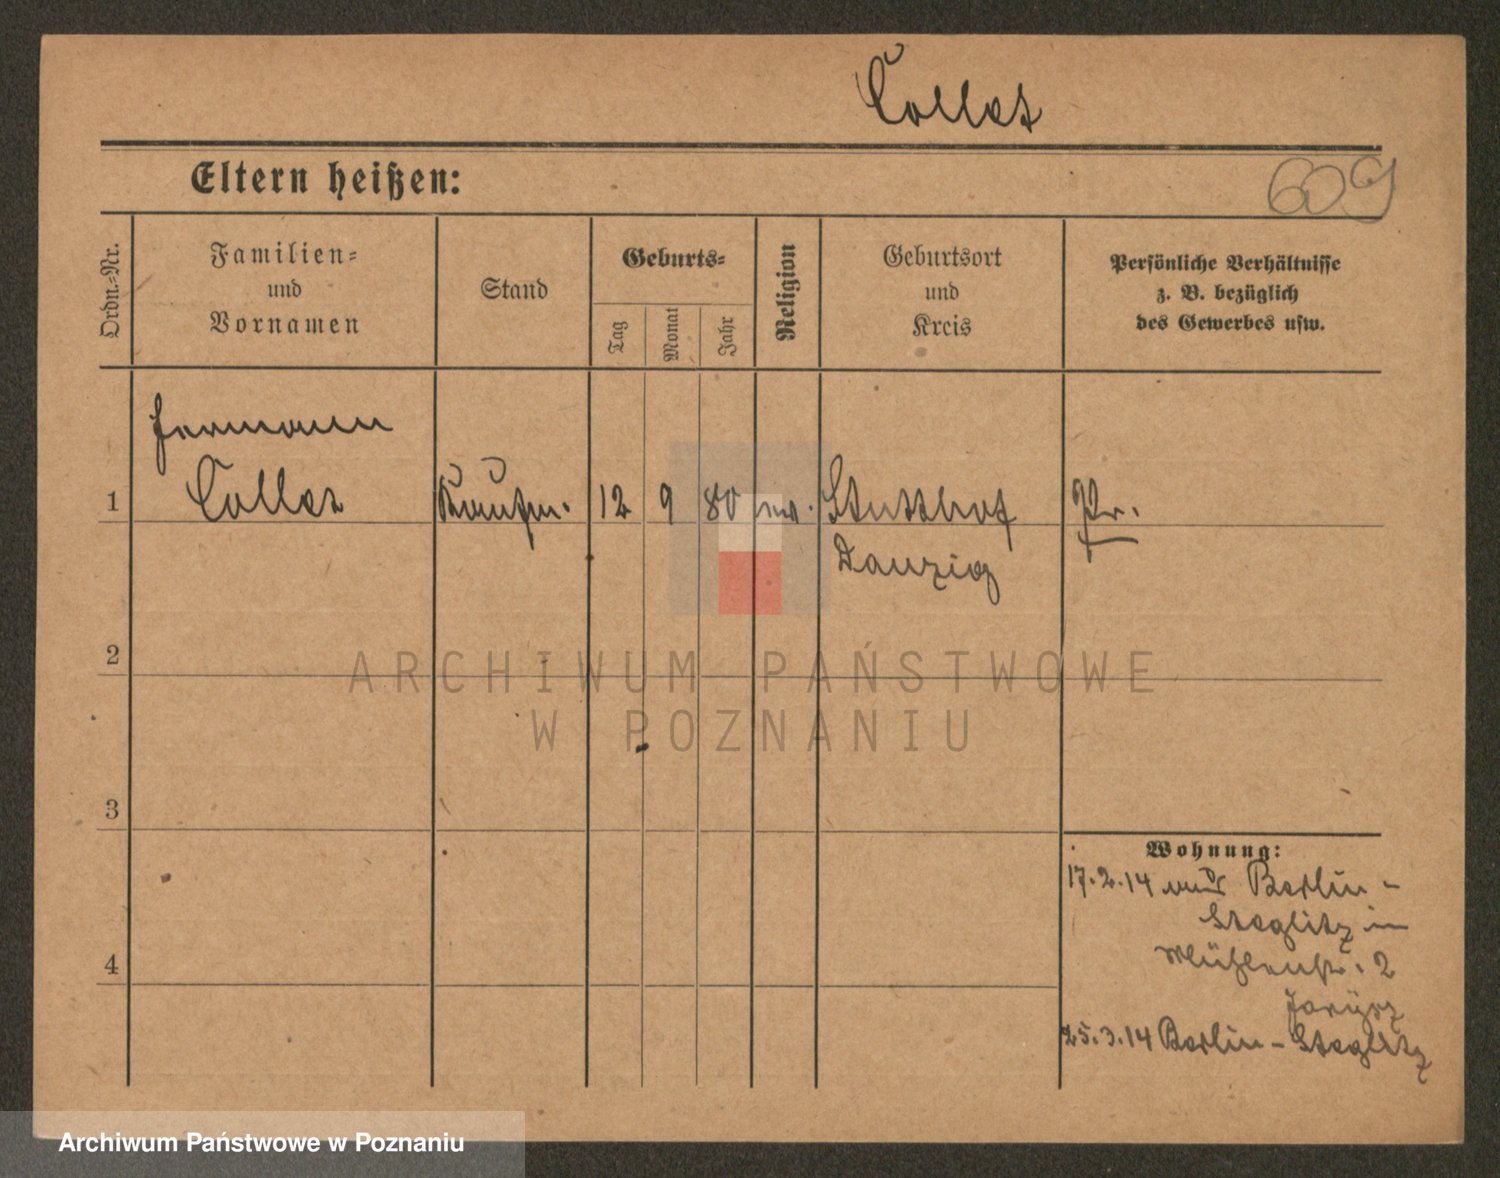 Collet
609
Eltern heißen:
Ordn.-Nr.
Familien-
und
Vornamen
Stand
Geburts-
Tag
Monat
Jahr
Religion
Geburtsort
und
Kreis
Persönliche Verhältnisse
z. B. bezüglich
des Gewerbes usw.
Hermann
1 Collet Kaufm. 12 9 80 Stutthof Pr.
Danzig
2
3
4
Wohnung:
17.2.14 Berlin-
Steglitz in
Mühlenstr. 2
25.3.14 Berlin-Steglitz
ARCHIWUM PAŃSTWOWE
W POZNANIU
Archiwum Państwowe w Poznaniu